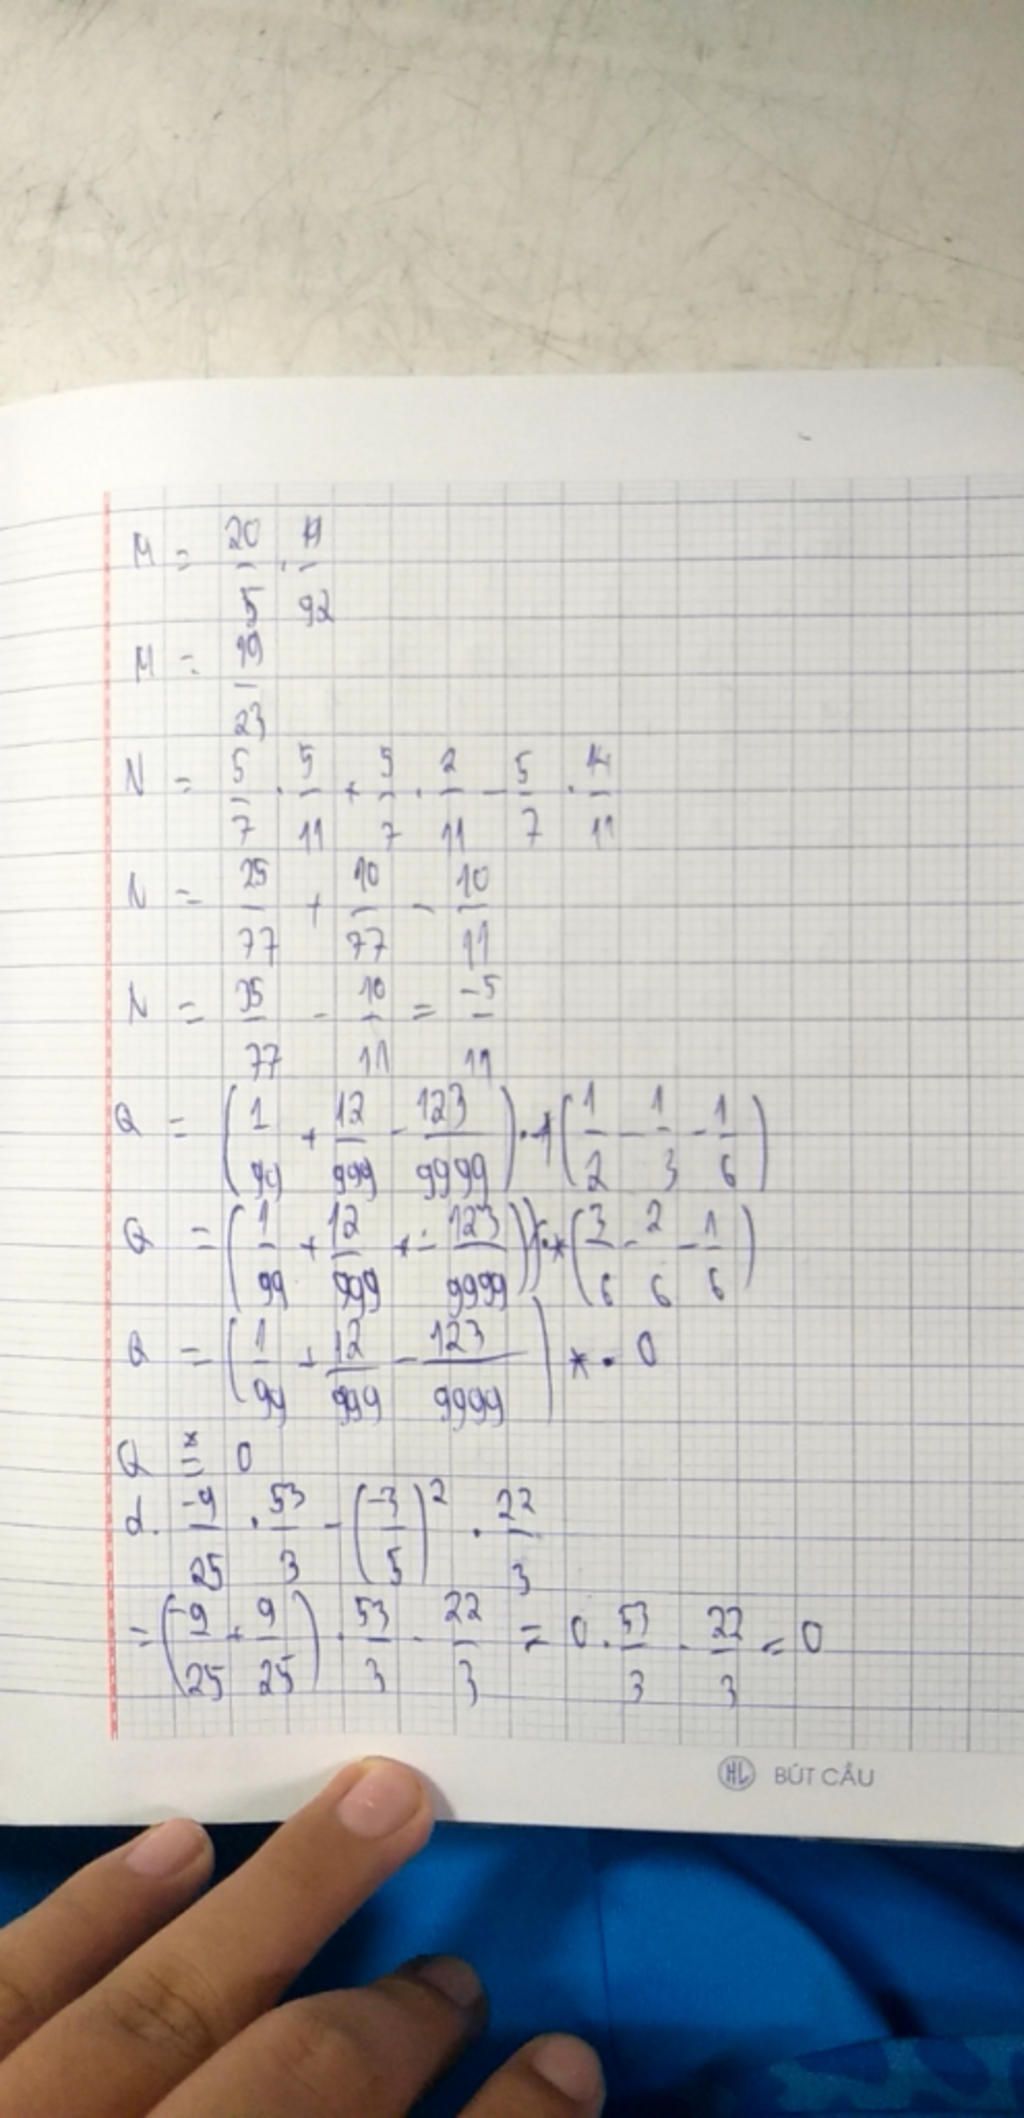 M = 20/5 . 19/92
M = 19/23
N = 5/7 . 5/11 + 5/7 . 2/11 - 5/7 . 14/11
N = 25/77 + 10/77 - 10/11
N = 35/77 - 10/11 = -5/11
Q = (1/99 + 12/999 - 123/9999) . (1/2 - 1/3 - 1/6)
Q = (1/99 + 12/999 - 123/9999) . (3/6 - 2/6 - 1/6)
Q = (1/99 + 12/999 - 123/9999) . 0
Q = 0
d. -9/25 . 53/3 - (-3/5)² . 22/3
= (-9/25 + 9/25) . 53/3 - 22/3 = 0 . 53/3 - 22/3 = 0
HL BÚT CÂU